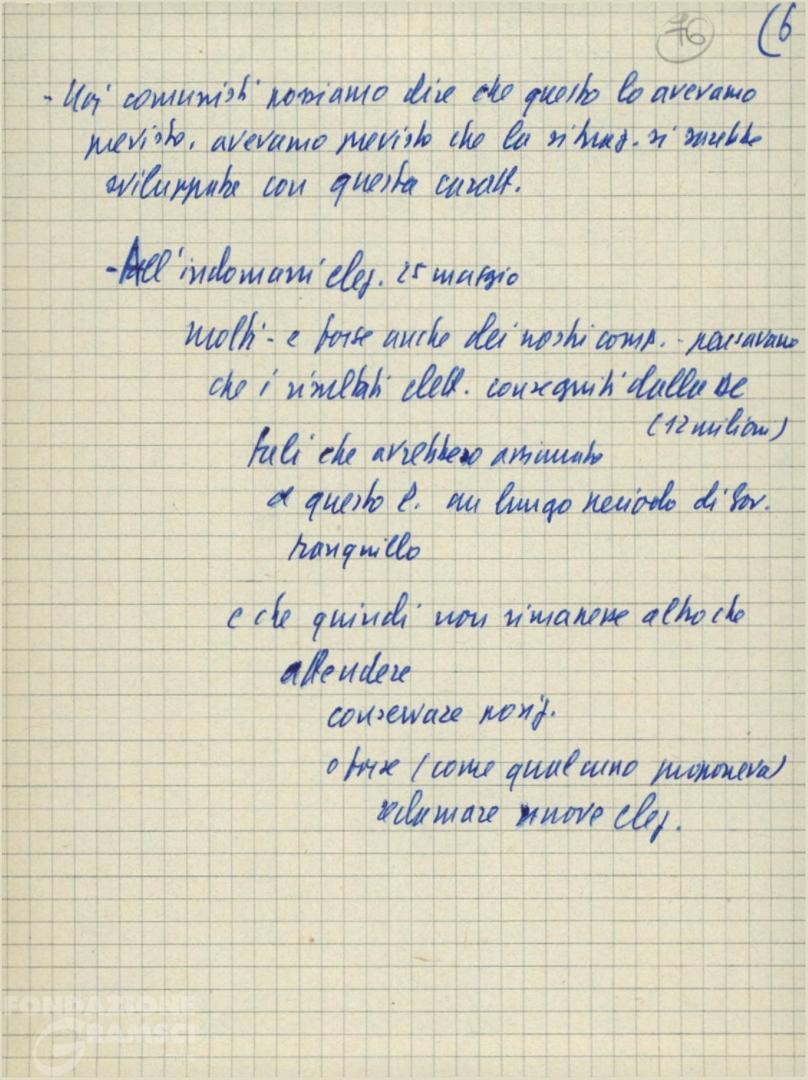 76
(6
- Noi comunisti possiamo dire che questo lo avevamo
previsto. avevamo previsto che la situaz. si sarebbe
sviluppata con questa caratt.
- All'indomani elez. 25 maggio
molti - e forse anche dei nostri comp. - pensavano
che i risultati elett. conseguiti dalla DC
(12 milioni)
tali che avrebbero assicurato
a questo P. un lungo periodo di Gov.
tranquillo
e che quindi non rimanesse altro che
attendere
conservare posiz.
o forse (come qualcuno proponeva)
reclamare nuove elez.
FONDAZIONE
GRAMSCI